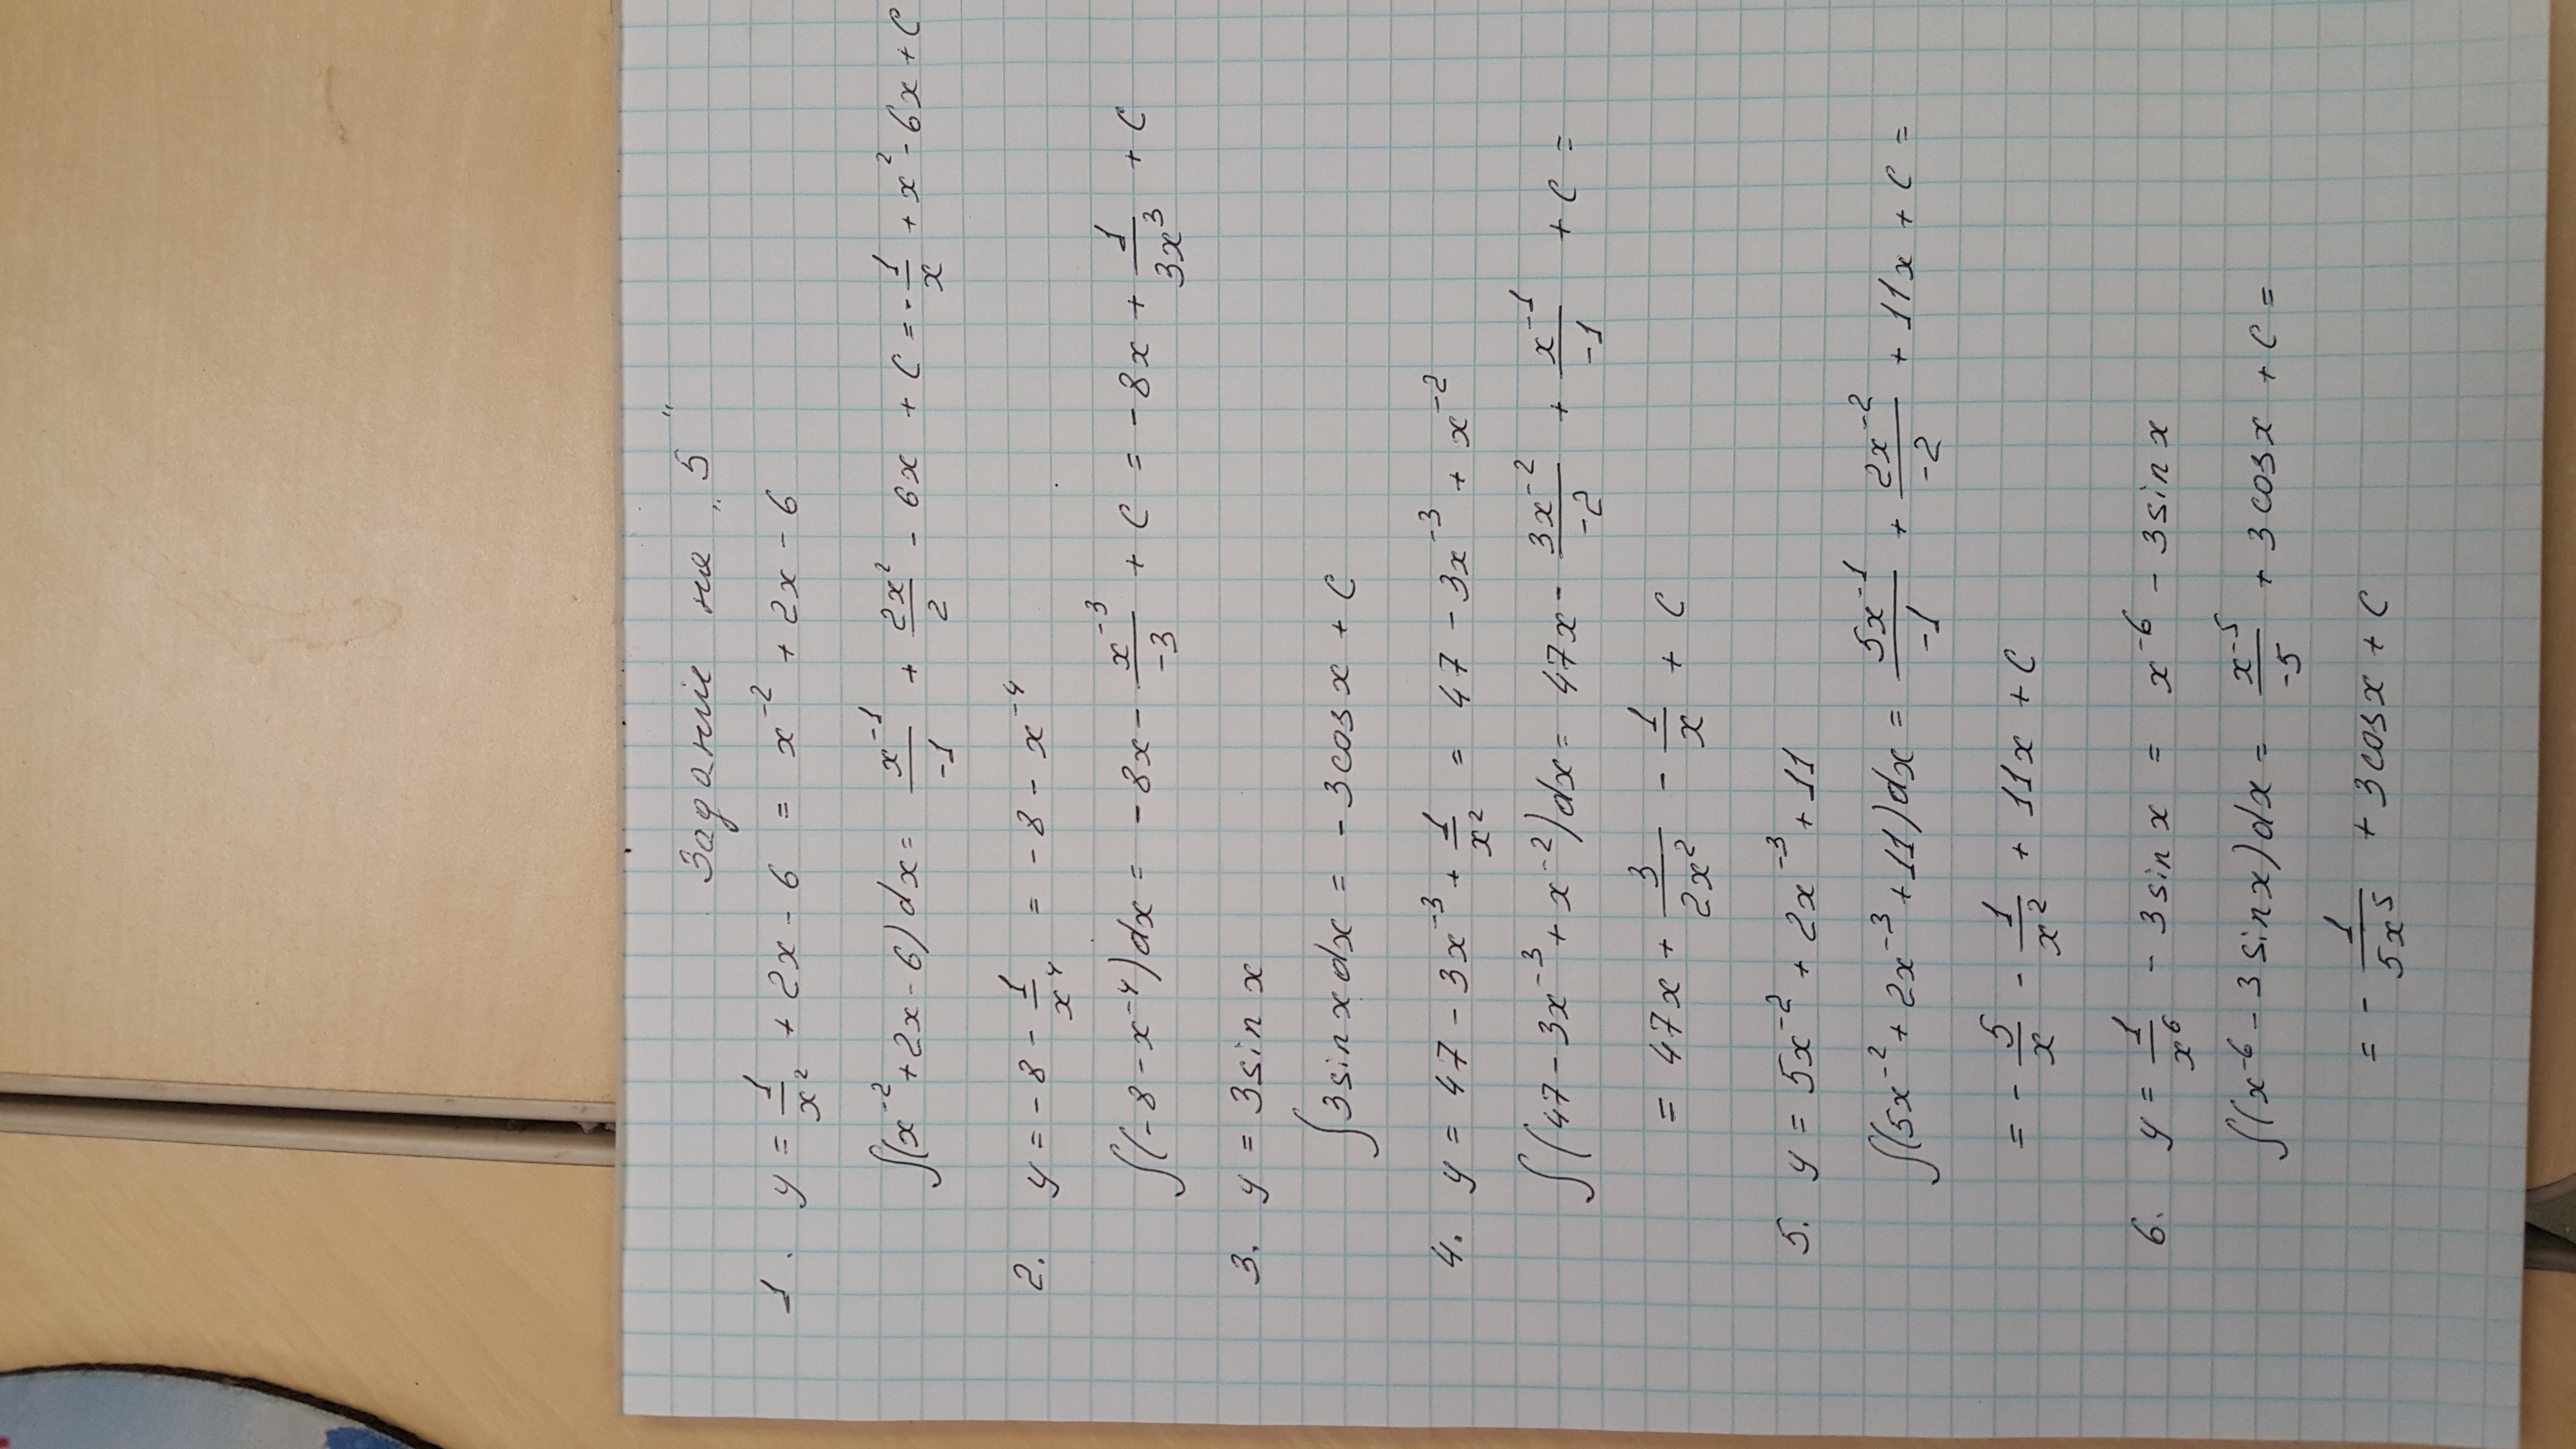 Задание на „5"
1. y = 1/x² + 2x - 6 = x⁻² + 2x - 6
∫(x⁻² + 2x - 6)dx = x⁻¹/-1 + 2x²/2 - 6x + C = -1/x + x² - 6x + C
2. y = -8 - 1/x⁴ = -8 - x⁻⁴
∫(-8 - x⁻⁴)dx = -8x - x⁻³/-3 + C = -8x + 1/3x³ + C
3. y = 3sin x
∫3sin x dx = -3cos x + C
4. y = 47 - 3x⁻³ + 1/x² = 47 - 3x⁻³ + x⁻²
∫(47 - 3x⁻³ + x⁻²)dx = 47x - 3x⁻²/-2 + x⁻¹/-1 + C =
= 47x + 3/2x² - 1/x + C
5. y = 5x⁻² + 2x⁻³ + 11
∫(5x⁻² + 2x⁻³ + 11)dx = 5x⁻¹/-1 + 2x⁻²/-2 + 11x + C =
= -5/x - 1/x² + 11x + C
6. y = 1/x⁶ - 3sin x = x⁻⁶ - 3sin x
∫(x⁻⁶ - 3sin x)dx = x⁻⁵/-5 + 3cos x + C =
= -1/5x⁵ + 3cos x + C